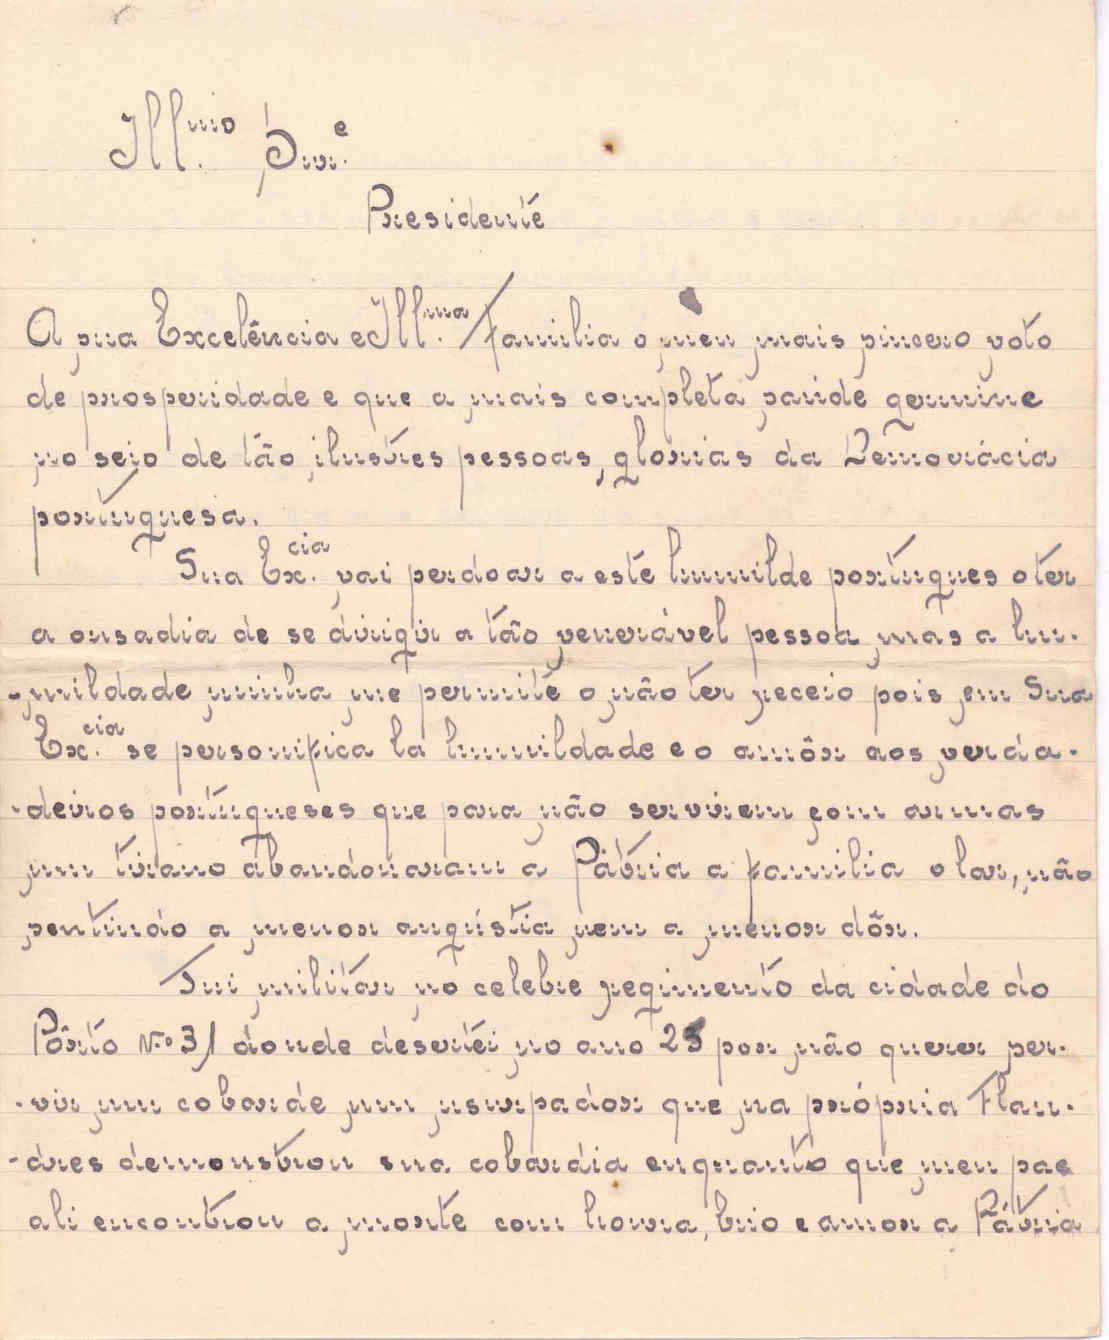 Ill.mo Snr.e
Presidente
A sua Excelência e Ill.ma Familia o meu mais sincero voto
de prosperidade e que a mais completa saúde germine
no seio de tão ilustres pessoas, glorias da Democrácia
portuguesa.
Sua Ex.cia vai perdoar a este humilde portugues o ter
a ousadia de se dirigir a tão venerável pessoa mas a hu-
-mildade minha me permite o não ter receio pois em Sua
Ex.cia se personifica la humildade e o amôr aos verda-
-deiros portugueses que para não servirem com armas
um tirano abandonaram a Pátria a familia o lar, não
sentindo a menor angústia nem a menor dôr.
Fui militar no celebre regimento da cidade do
Pôrto N.º 31 donde desertei no ano 25 por não querer ser-
-vir um cobarde um usurpador que na própria Flan-
-dres demonstrou sua cobardia enquanto que meu pae
ali encontrou a morte com honra, brio e amor a Pátria